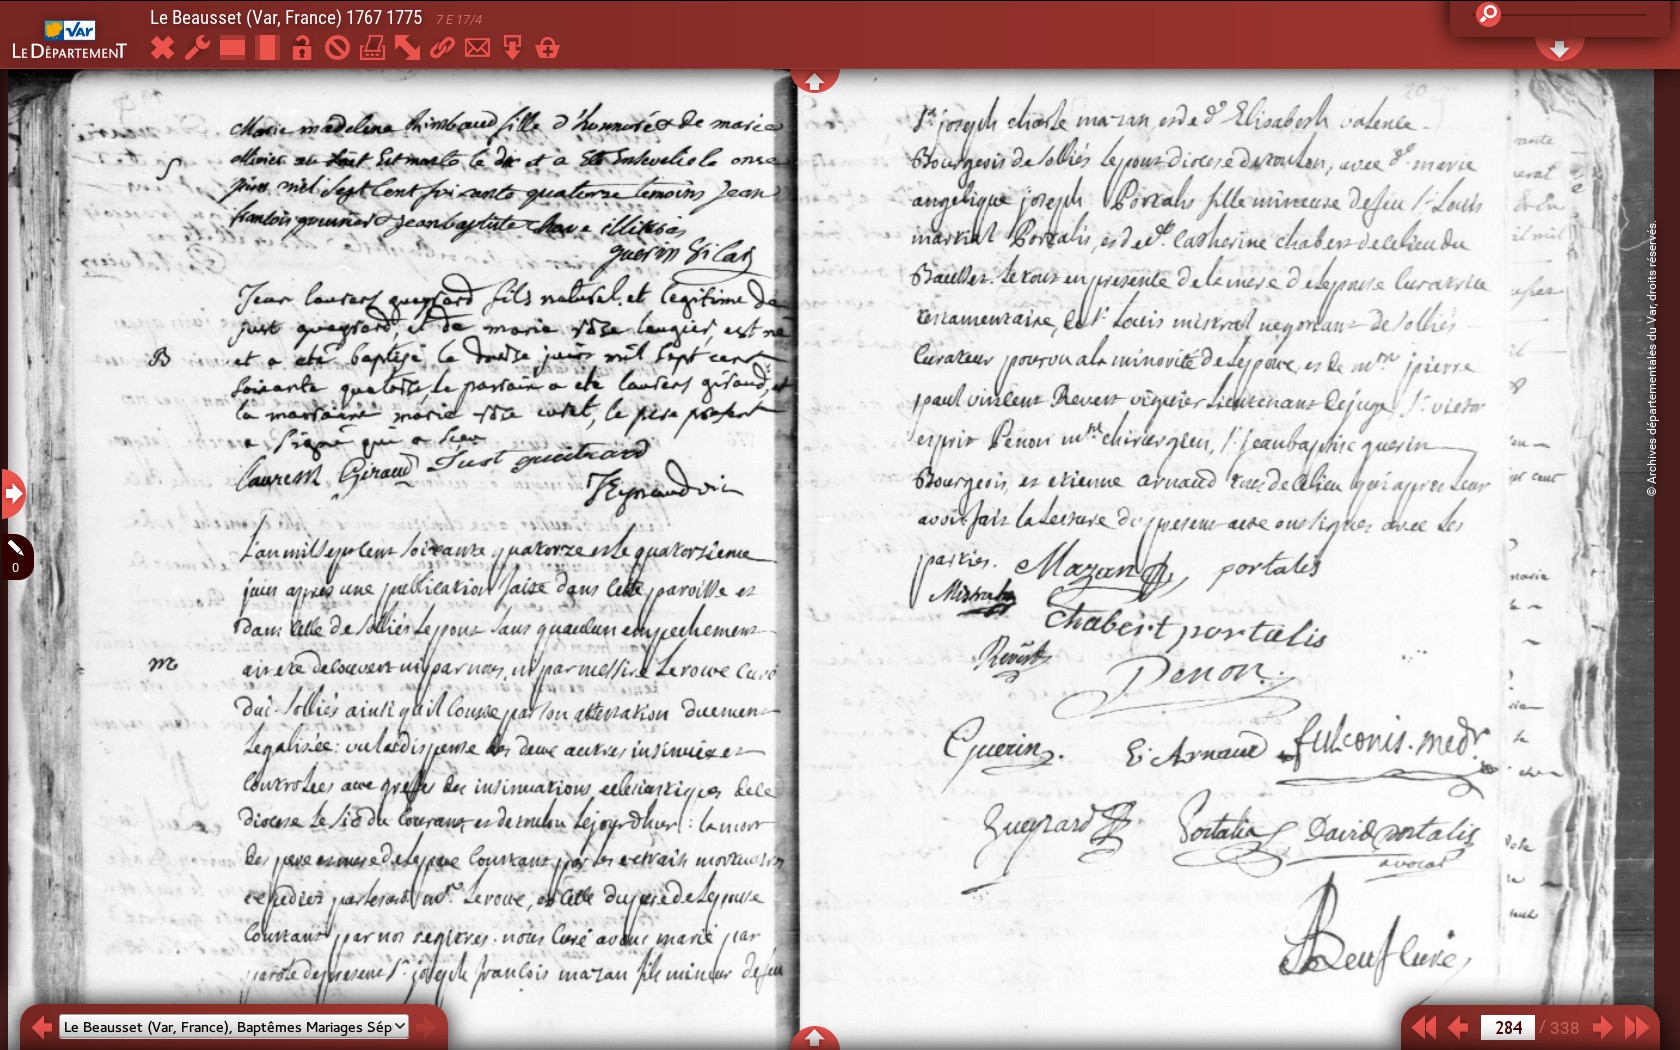 Le Beausset (Var, France) 1767 1775 7 E 17/4
VAR
LE DÉPARTEMENT
Marie madeleine Rimbaud fille d'honnoré & de marie
ollivier est morte le dix et a ete ensevelie le onze
juin mil sept cent soixante quatorze temoins Jean
francois & jean baptiste chave illitérés
guerin vicaire
S
Jean laurens gueyrard fils naturel et legitime de
just gueyrard, et de marie rose laugier, est né
B
et a eté baptisé le douse juin mil sept cent
soixante quatorse, le parrain a ete laurens giraud, et
la marraine marie rose, le pere present
a signé qui a sceu
Laurens Giraud Just gueirard
L'an mil sept cent soixante quatorze et le quatorzieme
juin apres une publication faite dans cette paroisse et
dans celle de Solliés le pont sans qu'aucun empechement
m
ait eté decouvert ni par nous, ni par messire Leroue Curé
du Solliés ainsi qu'il conste par son attestation duement
Legalisée: vu la dispense des deux autres insinuée et
controlées aux greffes des insinuations ecclesiastiques de ce
diocese le six du courant, et de toulon le jourd'hui: la mort
des pere de l'epoux constant par les extraits mortuaires
expediez par Leroue, et celle du pere de l'epouse
constant par nos registres. nous Curé avons marié par
parole de present Sr. joseph françois mazan fils mineur de feu
20
Sr. joseph charle mazan, et de de. Elisabeth valence
Bourgeois de solliés le pont diocese de toulon, avec de. marie
angelique joseph Portalis fille mineure de feu Sr. Louis
martial Portalis, et de de. Catherine chabert de ce lieu du
Bausset. le tout en presence de la mere de l'epouse curatrice
testamentaire, de Sr. Louis mistral negotiant de solliés
curateur pourvu a la minorité de l'epoux, et de me. pierre
paul vincent Revest viguier Lieutenant de juge, Sr. victor
esprit Penon me. chirurgien, Sr. jean baptiste guerin
Bourgeois, et etienne arnaud de ce lieu qui apres leur
avoir fait la lecture du present acte ont signés avec les
parties. Mazan, portalis
Mistral
Chabert portalis
Revest
Penon
Guerin. E. Arnaud fulconis. medr.
Gueyrard Portalis David portalis
avocat
curé
© Archives départementales du Var, droits réservés.
0
Le Beausset (Var, France), Baptêmes Mariages Sép
284 / 338